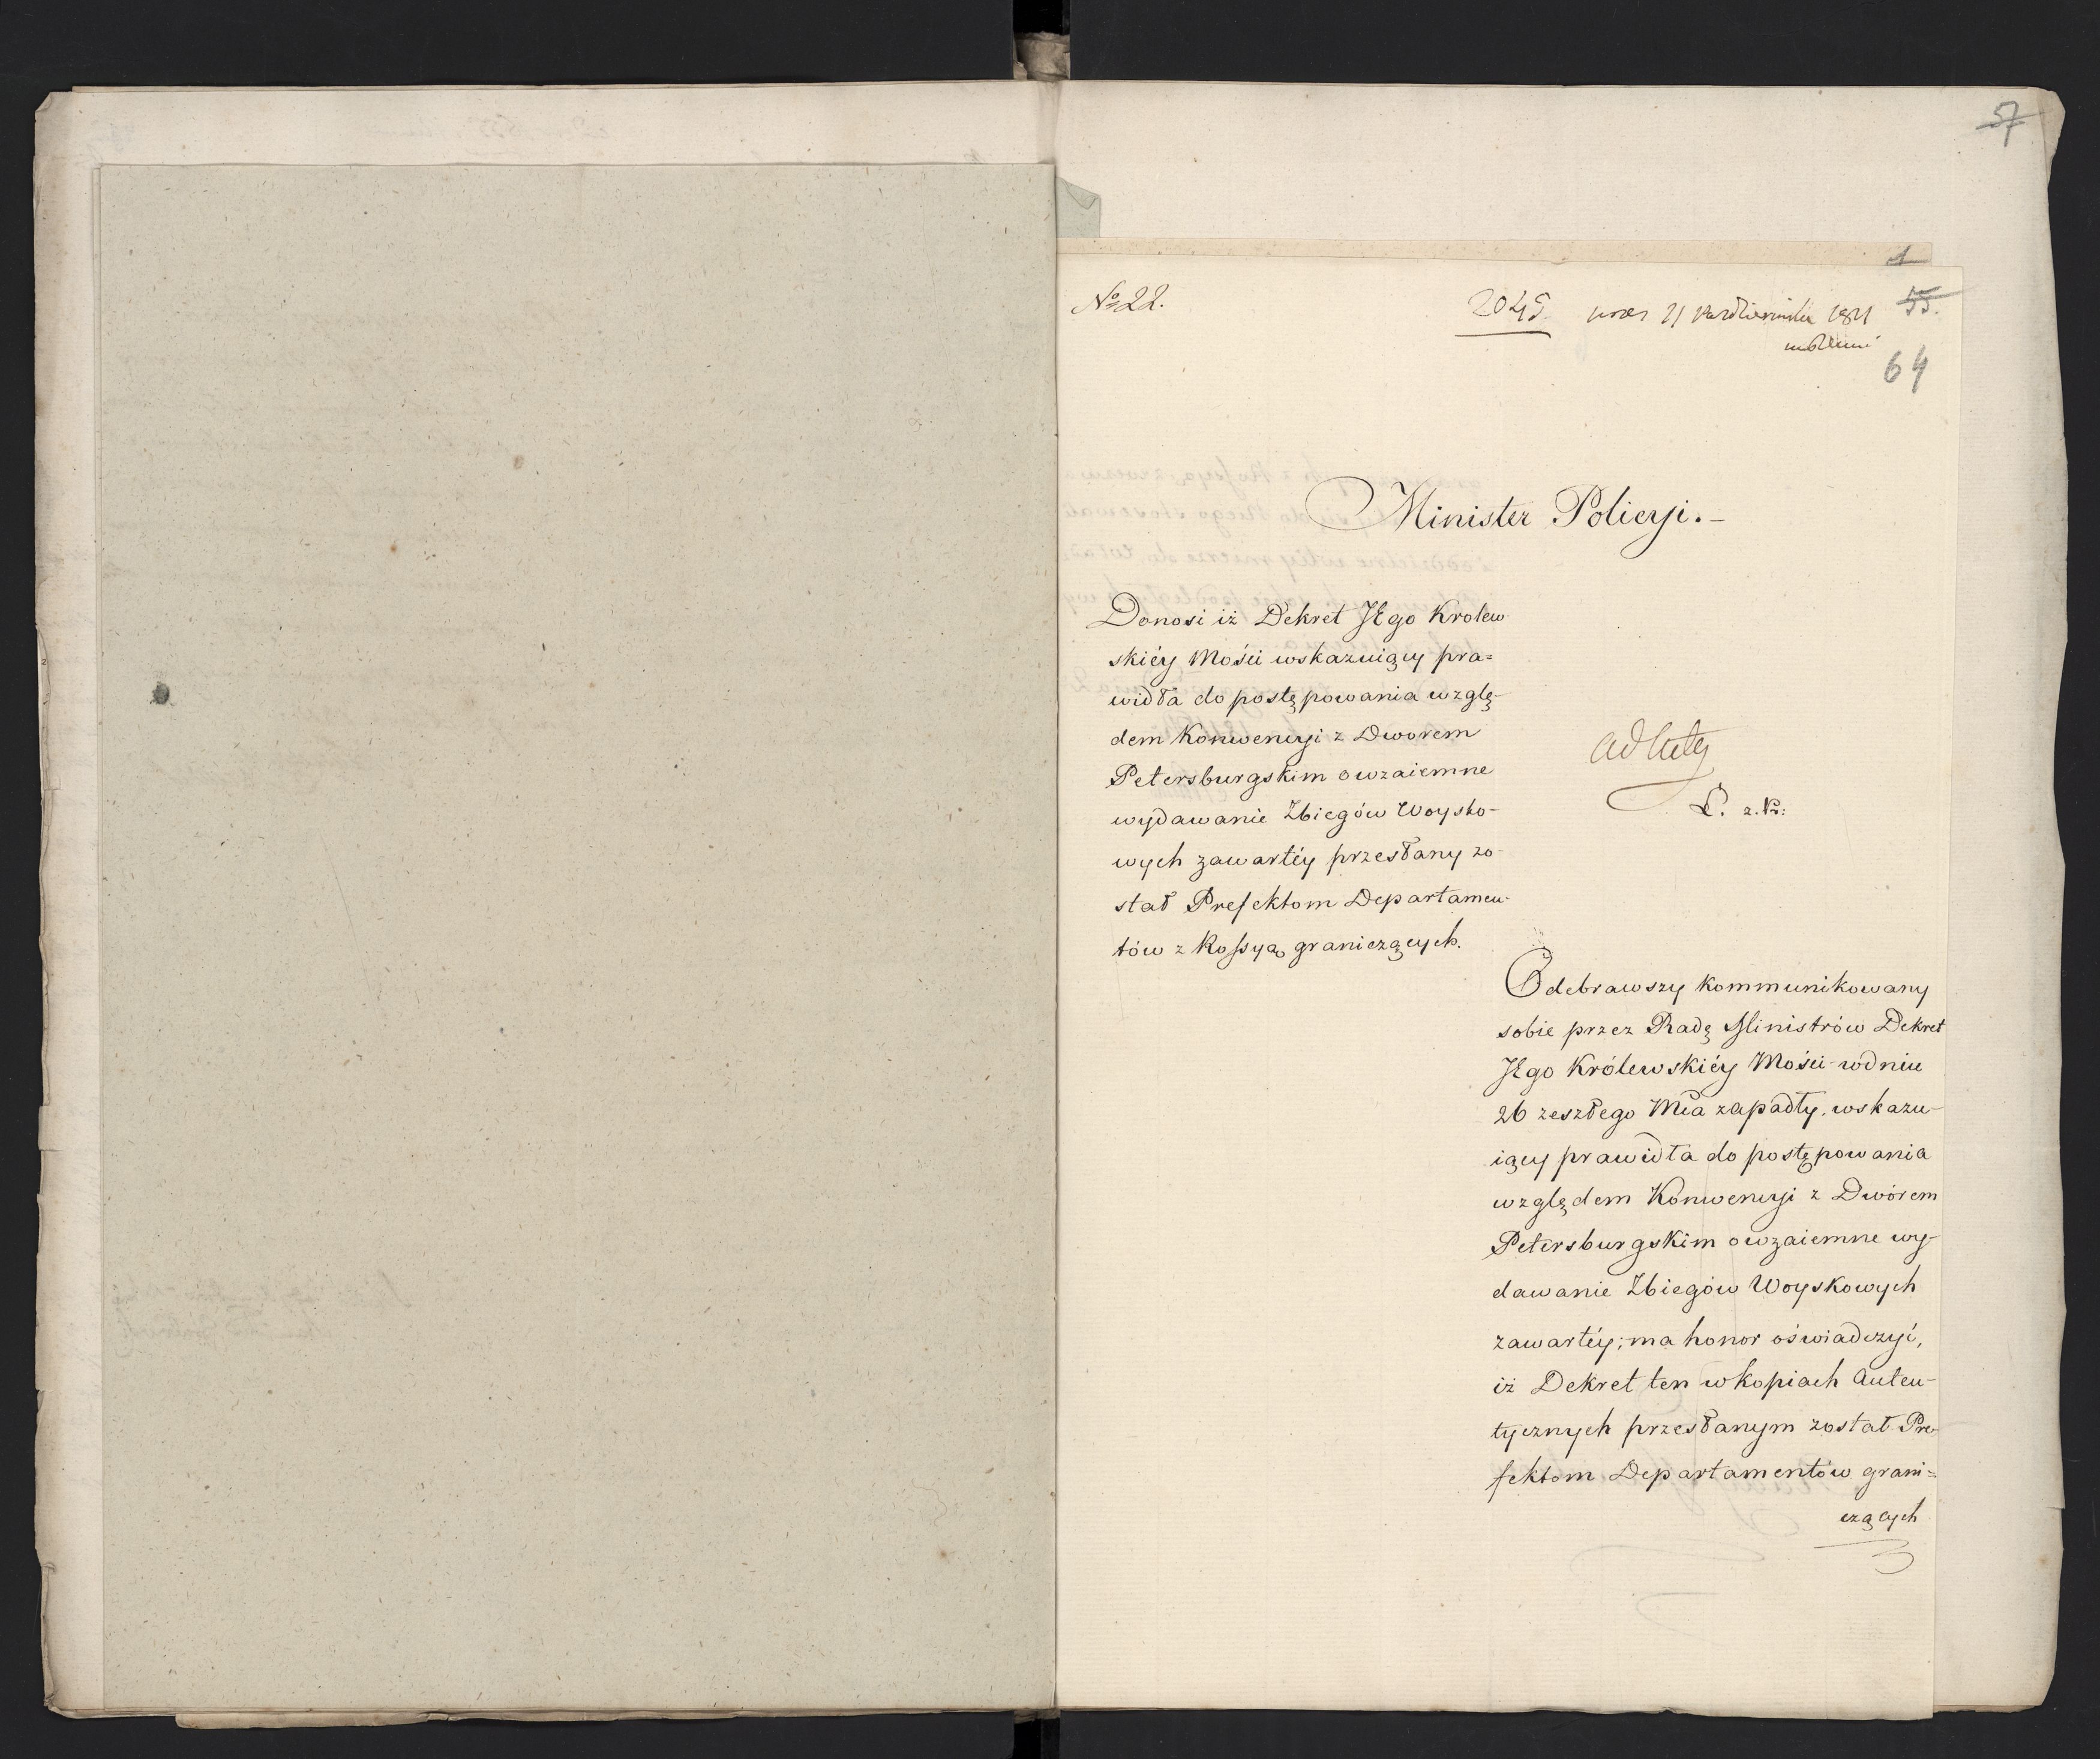 57
1
№ 22.
2045 pres 21 Października 1811
55.
64
Minister Policyi. –
Donosi iż Dekret JEgo Krolew
skiéy Mości wskazuiący pra=
widła do postępowania wzglę-
dem Konwencyi z Dworem
Petersburgskim o wzaiemne
wydawanie Zbiegów Woysko-
wych zawartéy przesłany zo-
stał Prefektom Departamen-
tów z Rossyą graniczących.
ad acta
L. z. K:
Odebrawszy kommunikowany
sobie przez Radę Ministrów Dekret
JEgo Królewskiéy Mości w dniu
26 zeszłego Mca zapadły, wskazu-
iący prawidła do postępowania
względem Konwencyi z Dworem
Petersburgskim o wzaiemne wy-
dawanie Zbiegów Woyskowych
zawartéy; ma honor oświadczyć,
iż Dekret ten w kopiach Auten-
tycznych przesłanym został Pre-
fektom Departamentów grani=
czących